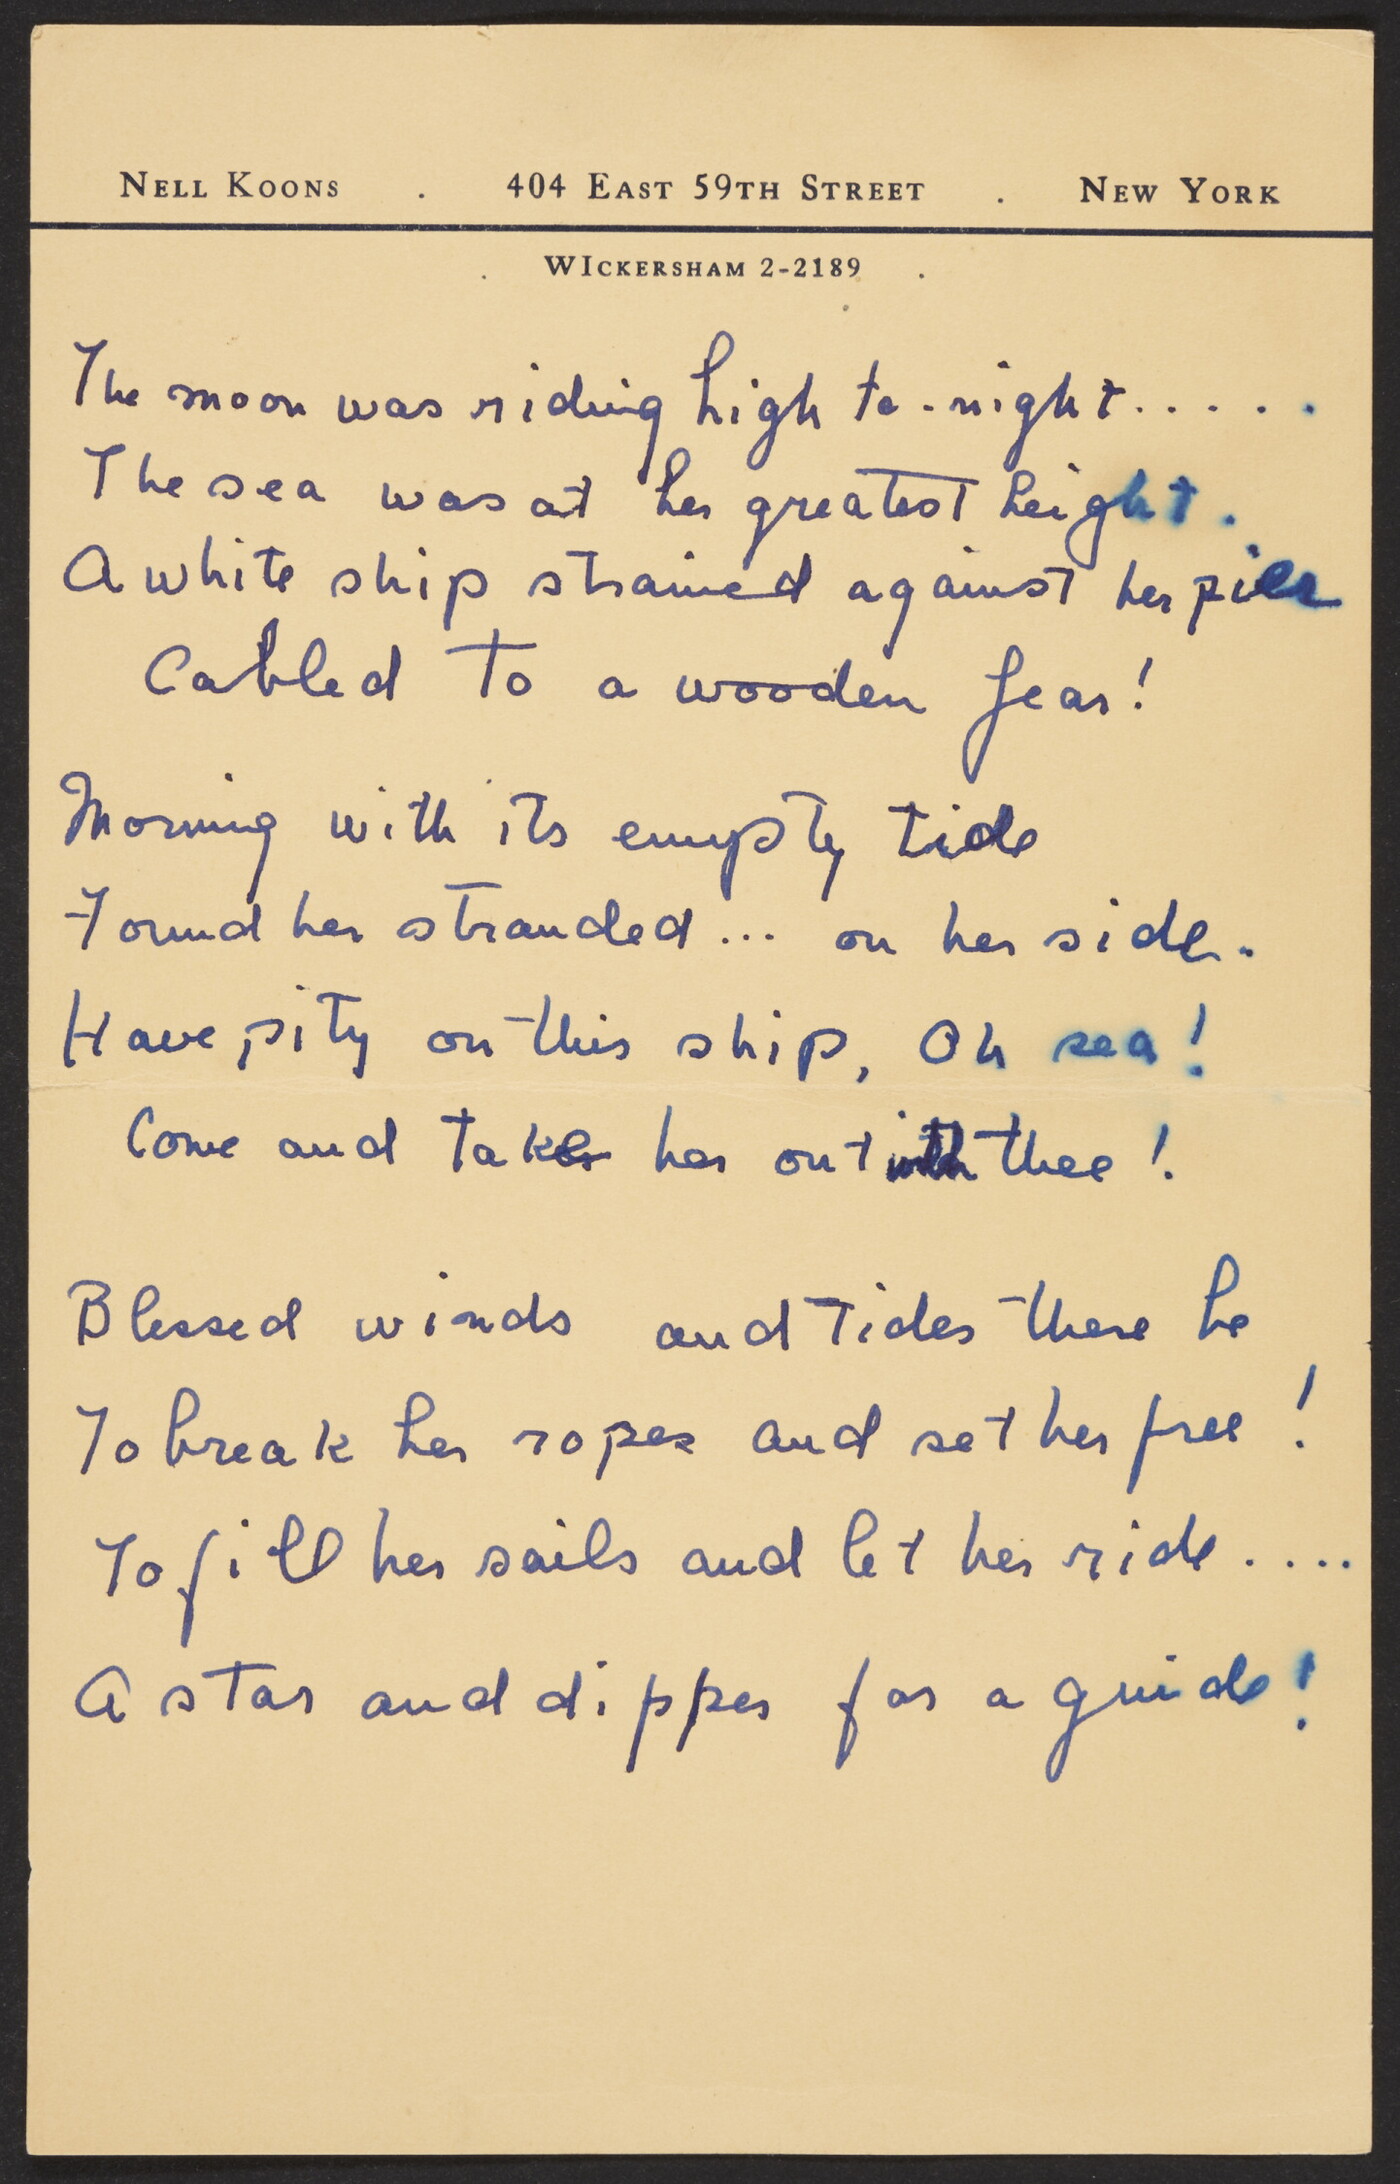 NELL KOONS . 404 EAST 59TH STREET . NEW YORK
. WICKERSHAM 2-2189 .
The moon was riding high to-night.....
The sea was at her greatest height.
A white ship strained against her pier
Cabled to a wooden fear!
Morning with its empty tide
Found her stranded... on her side.
Have pity on this ship, Oh sea!
Come and take her out with thee!
Blessed winds and tides there be
To break her ropes and set her free!
To fill her sails and let her ride....
A star and dipper for a guide!